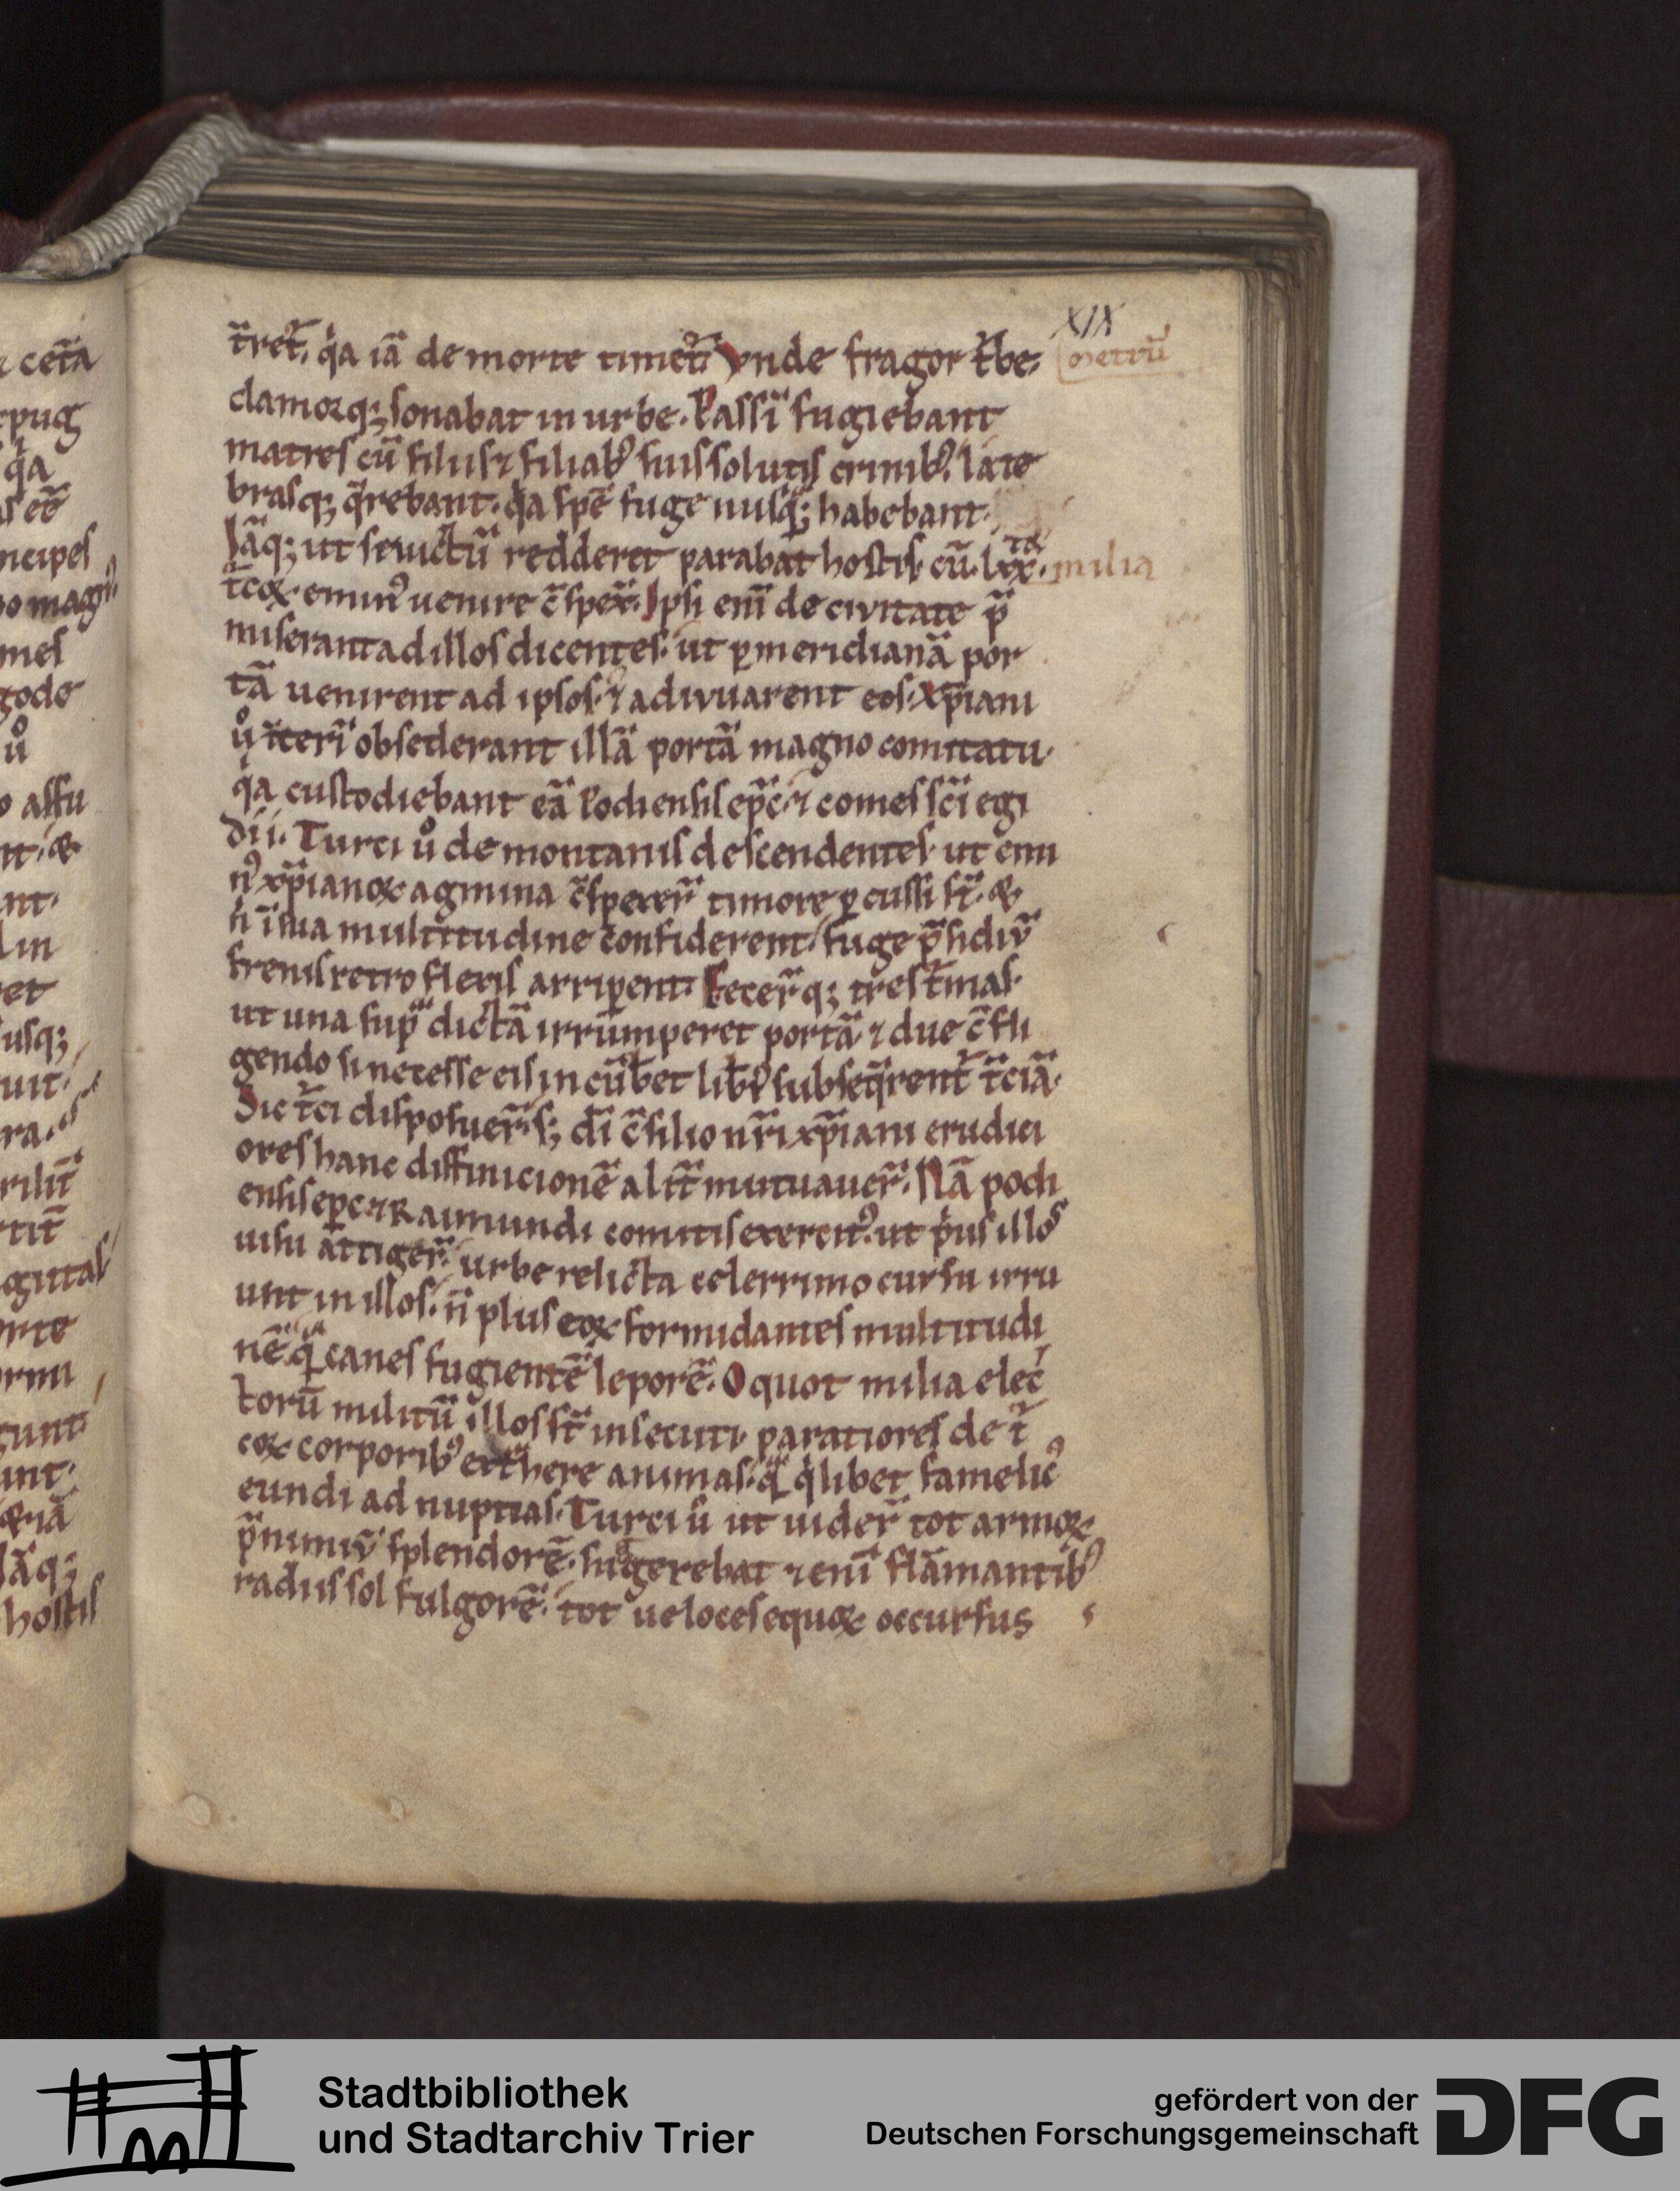 XIX
t̄ret᷑. q̇a iā de morte timet᷑. Vnde fragor t᷑be.
(metrū
clamorq; sonabat in urbe. Passī fugiebant
matres cū filiis ⁊ filiab᷒ suis solutis crinib᷒. late
brasq; q̄rebant. q̇a spē fuge nusq̄; habebant.
Iāq; ut seuictū redderet parabat hostis. cū. lxx. ta milia
t᷑coꝝ. emin᷒ uenire c̄spex̄. Ipsi enī de civitate p̄
miserant ad illos dicentes. ut ꝑ meridianā por
tā uenirent ad ipsos. ⁊ adivuarent eos. xp̄iani
ů īterī obsederant illā portā magno comitatu.
q̇a custodiebant eā Podiensis ep̄c. ⁊ comes sc̄i egi
dii. Turci ů de montanis descendentes. ut emi
n᷒ xp̄ianoꝝ agmina c̄spexer̄ timore ꝑcussi st̄. &
n̄ ī sua multitudine confiderent. fuge p̄sidiv̄
frenis retro flexis arriꝑent. Fecer̄q; tres t᷑mas.
ut una sup̄ dictā irrumperet portā. ⁊ due c̄fli
gendo si necesse eis incūb̄et lib̄i᷒ subseq̄rent᷑ t᷑ciā.
Sic t᷑ci disposuer̄. s; dī c̄silio nr̄i xp̄iani erudici
ores hanc diffinicionē alit̄ mutuauer̄. Nā podi
ensis ep̄c ⁊ Raimundi comitis exercit᷒. ut ṗus illos
uisu attiger̄. urbe relicta celerrimo cursu irru
unt in illos. n̄ plus eoꝝ formidantes multitudi
nē. q̄ canes fugientē leporē. O quot milia elec
torū militū illos st̄ insecuti. paratiores de t᷑
coꝝ corporib᷒ exthere animas. q̄ q̇libet famelic᷒
eundi ad nuptias. Turci ů ut uider̄ tot armoꝝ
p̄nimiv̄ splendorē. suggerebat ⁊ enī flāmantib᷒
radiis sol fulgorē. tot ueloces equoꝝ occursus
Stadtbibliothek
und Stadtarchiv Trier
gefördert von der
Deutschen Forschungsgemeinschaft
DFG